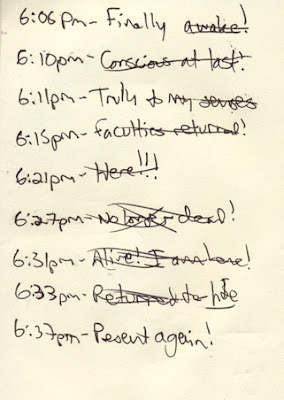 6:06pm - Finally awake!
6:10pm - Conscious at last!
6:11pm - Truly to my senses
6:15pm - Faculties returned!
6:21pm - Here!!!
6:27pm - No longer dead!
6:31pm - Alive! I am here!
6:33pm - Returned to
6:37pm - Present again!